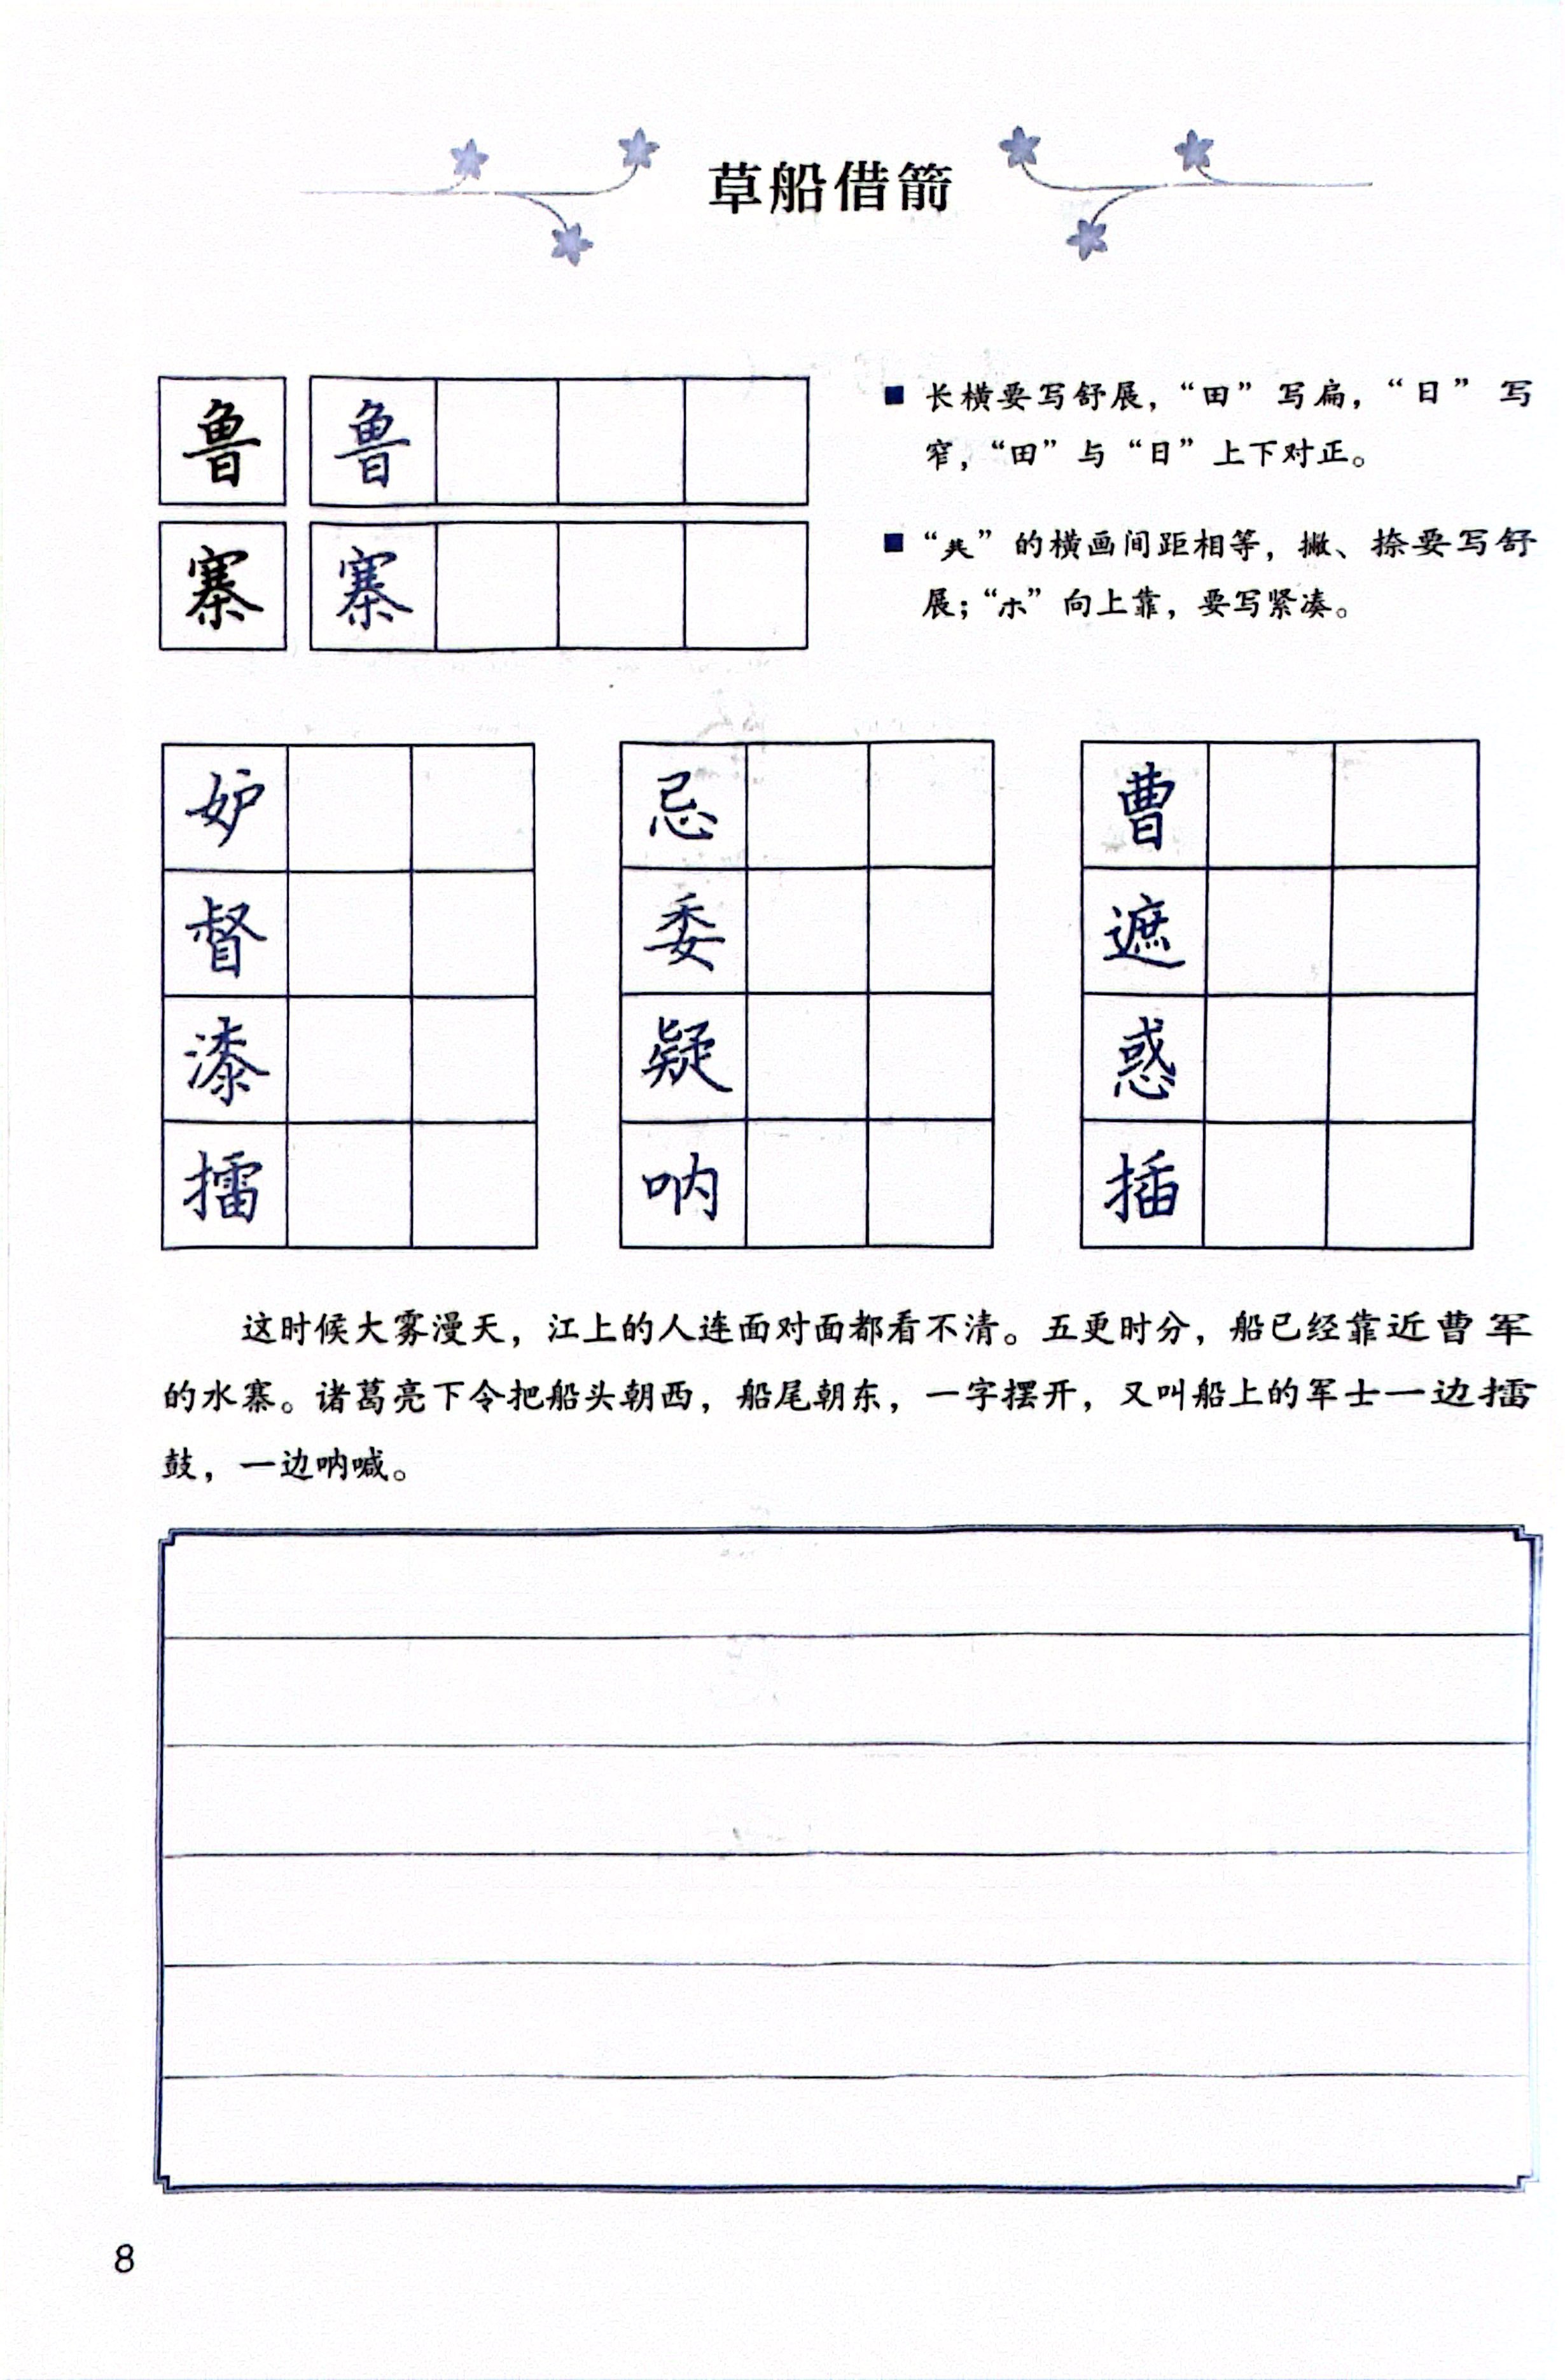 草船借箭
鲁 鲁
长横要写舒展，“田”写扁，“日”写
窄，“田”与“日”上下对正。
寨 寨
“𠀎”的横画间距相等，撇、捺要写舒
展；“朩”向上靠，要写紧凑。
妒 忌 曹
督 委 遮
漆 疑 惑
擂 呐 插
这时候大雾漫天，江上的人连面对面都看不清。五更时分，船已经靠近曹军
的水寨。诸葛亮下令把船头朝西，船尾朝东，一字摆开，又叫船上的军士一边擂
鼓，一边呐喊。
8